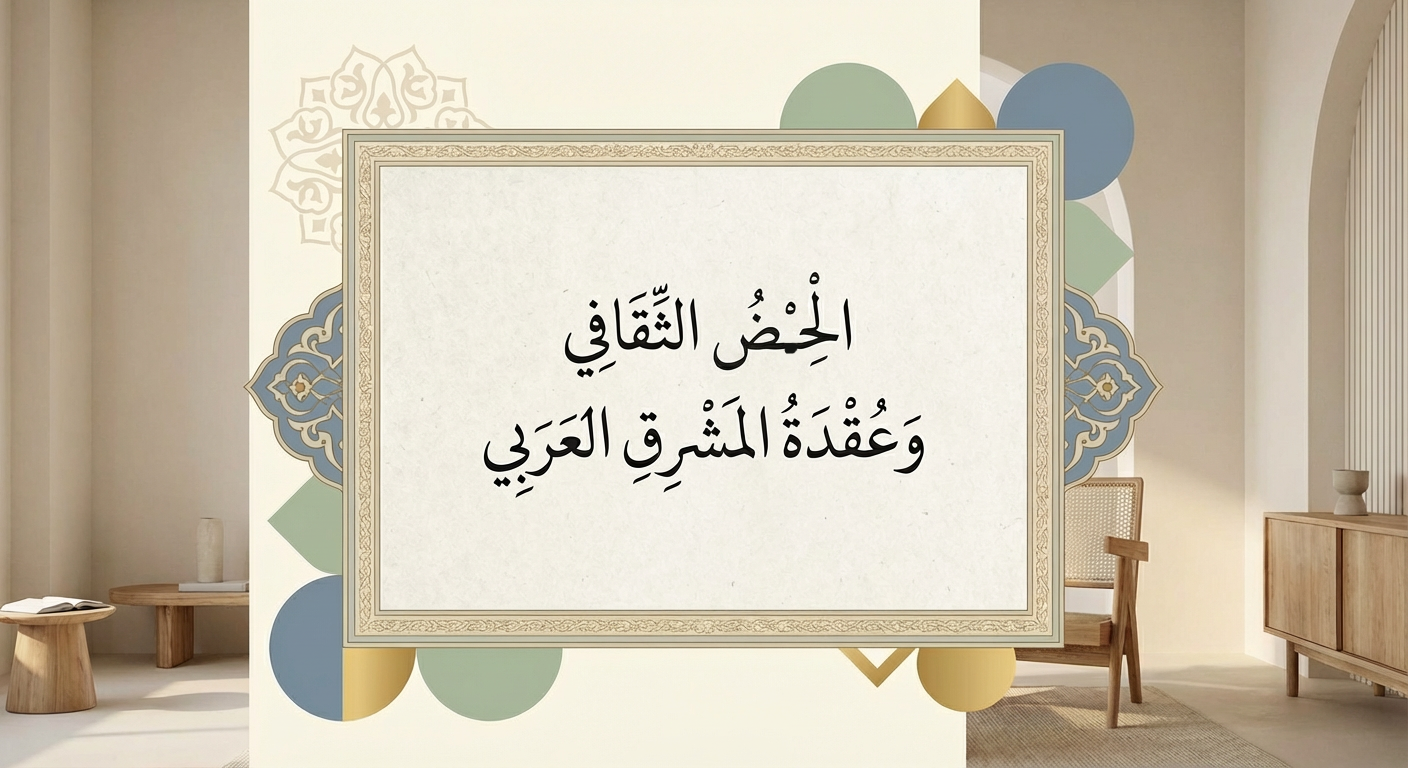 الثِّقَافِي
وَعُقْدَةُ المَشْرِقِ العَرَبِي